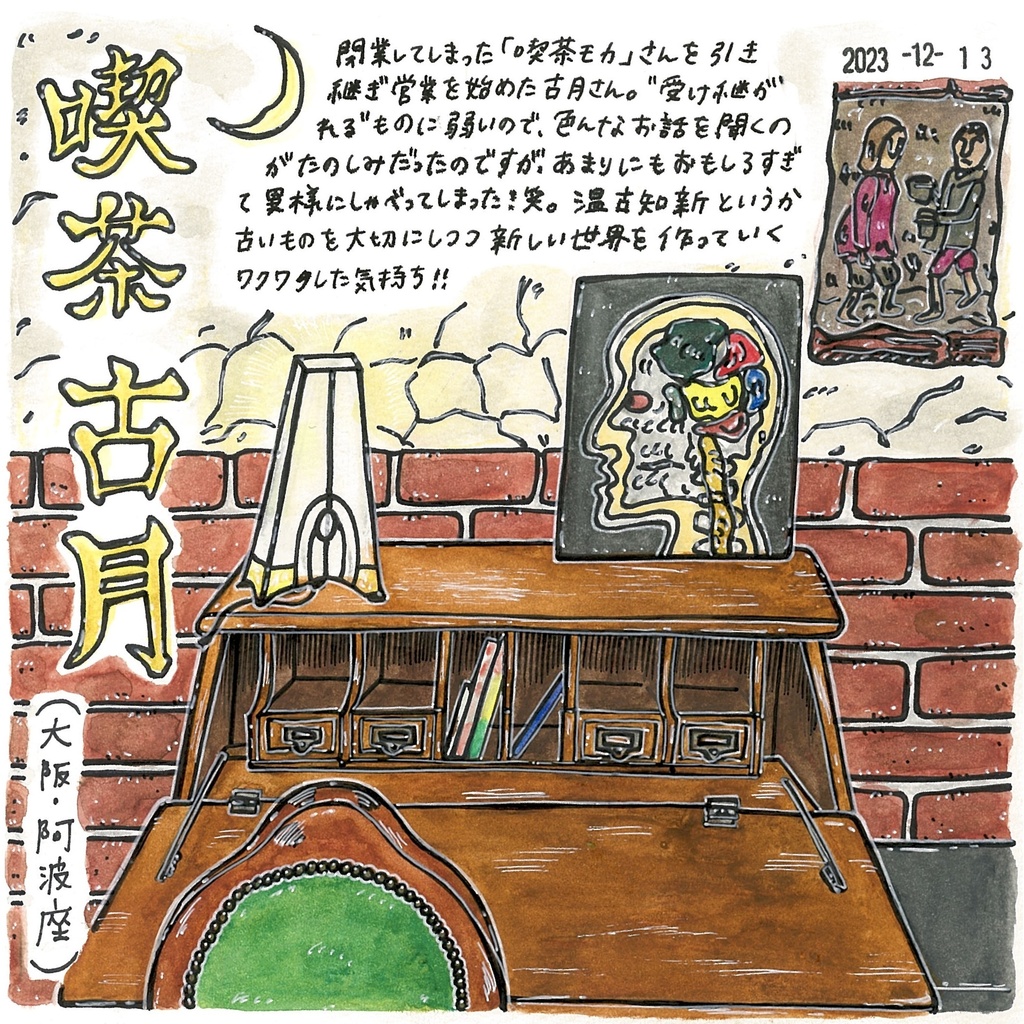 喫茶 古月
(大阪・阿波座)
閉業してしまった「喫茶モカ」さんを引き
継ぎ営業を始めた古月さん。“受け継が
れる”ものに弱いので、色んなお話を聞くの
がたのしみだったのですが、あまりにもおもしろすぎ
て異様にしゃべってしまった!笑。温古知新というか
古いものを大切にしつつ新しい世界を作っていく
ワクワクした気持ち!!
2023 -12- 13